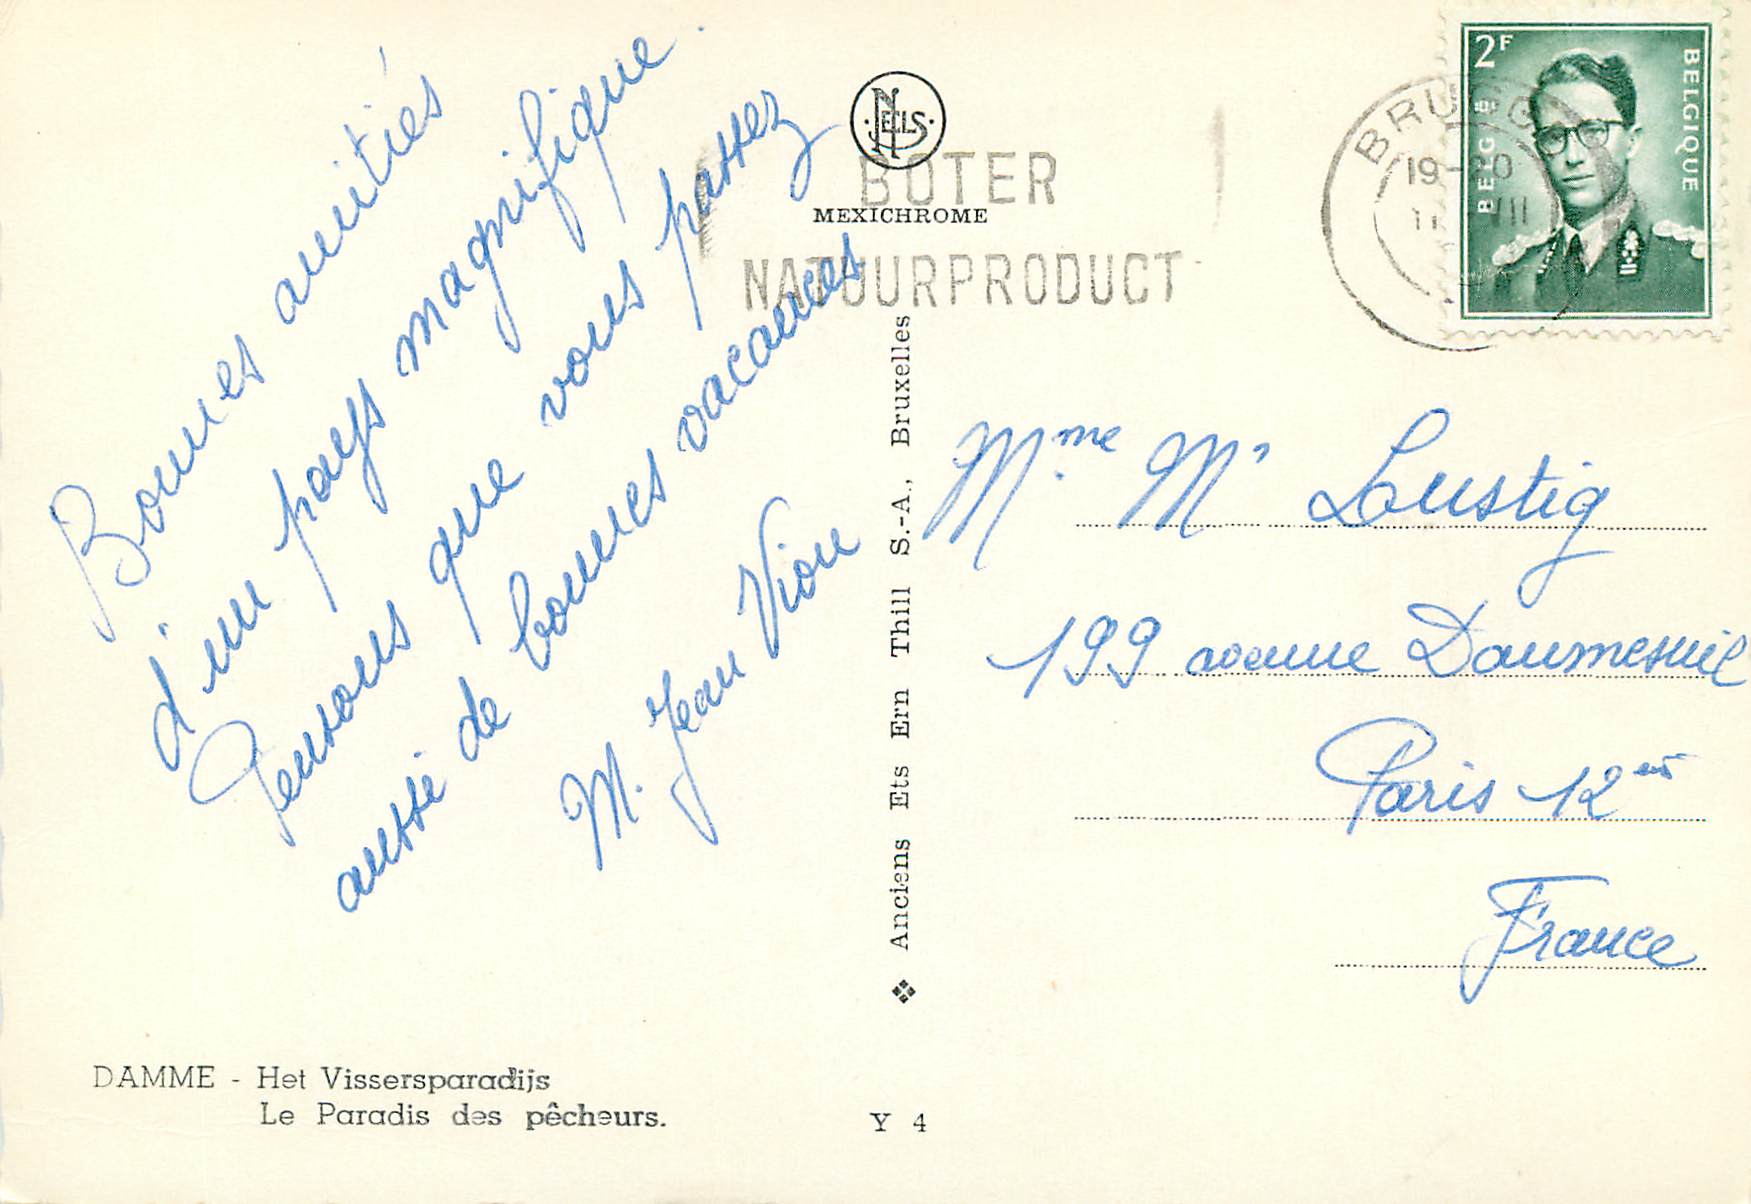 Bonnes amitiés
d'un pays magnifique.
Pensons que vous passez
aussi de bonnes vacances
M. Jean Vion
NELS
MEXICHROME
BOTER
NATUURPRODUCT
Anciens Ets Ern Thill S.-A., Bruxelles
2F
BELGIË
BELGIQUE
BRUGG
19-20
Mme Mr Lustig
199 avenue Daumesnil
Paris 12em
France
DAMME - Het Vissersparadijs
Le Paradis des pêcheurs.
Y 4